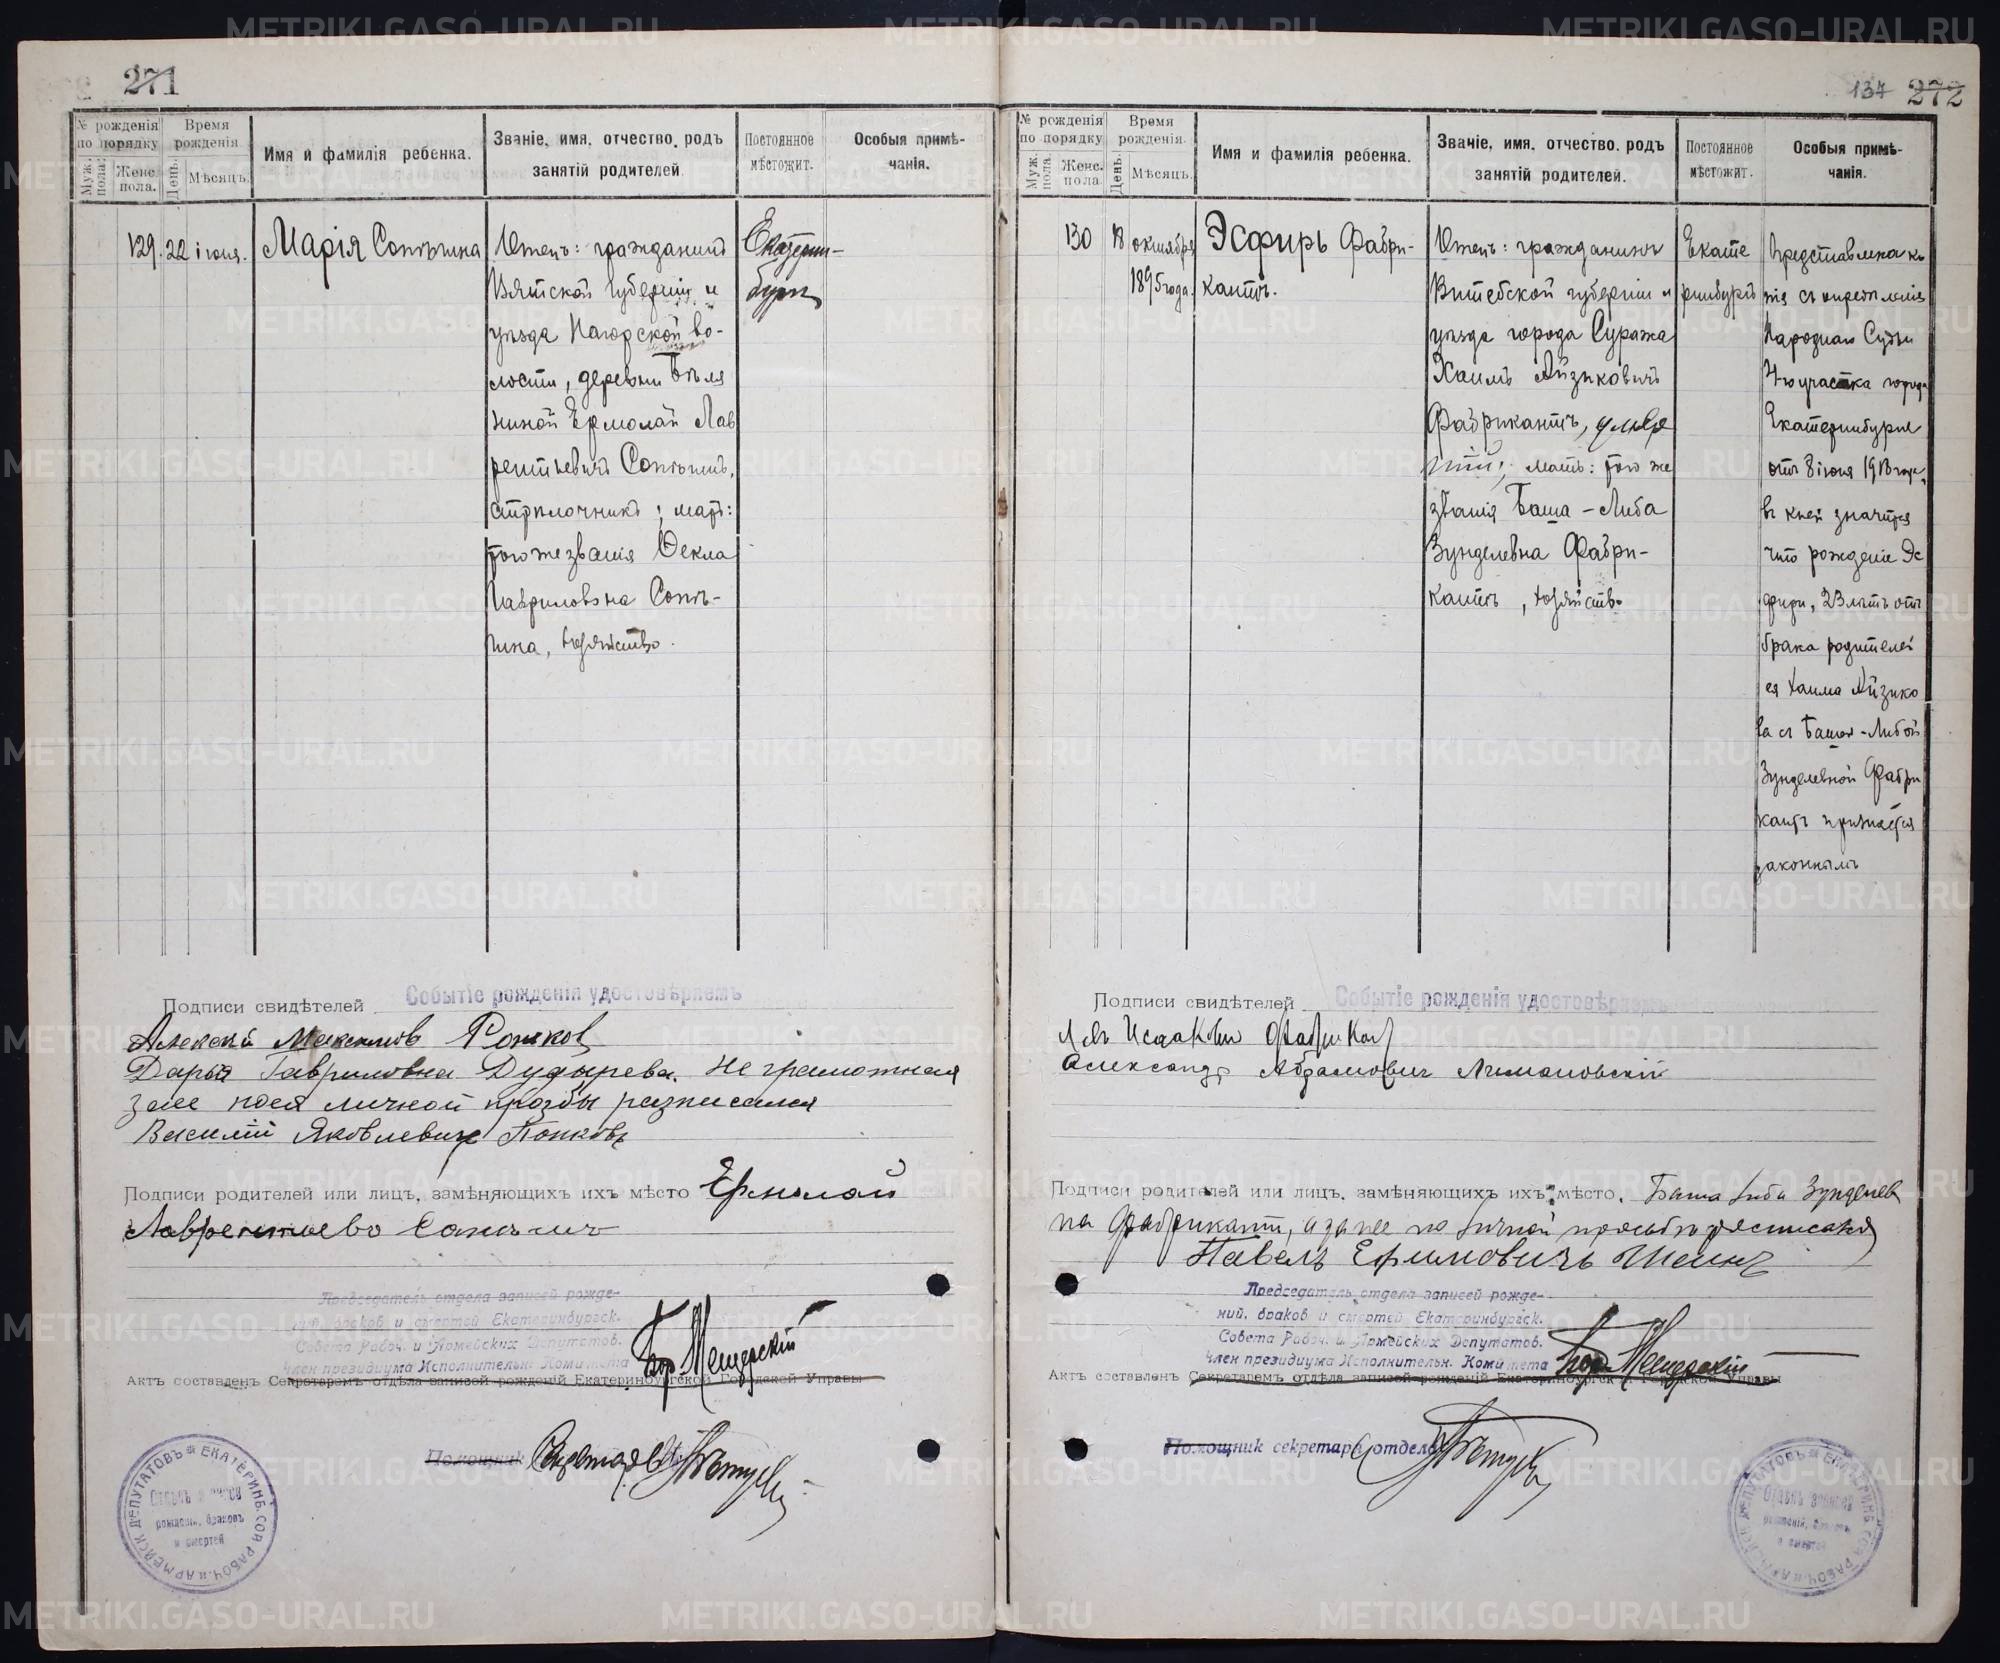 271
№ рожденія по порядку
Муж. пола.
Женс. пола.
Время рожденія
День.
Мѣсяцъ.
Имя и фамилія ребенка.
Званіе, имя, отчество, родъ занятій родителей.
Постоянное мѣстожит.
Особыя примѣ-
чанія.
129.
22
іюня.
Марія
Отецъ: гражданинъ
Вятской губерніи и
уѣзда Нагорской во-
лости, деревни
Ермолай Лав
рентьевичъ
стрѣлочникъ; мать:
того же званія Фекла
Гавриловна
хозяйство.
Екатерин-
бургъ
Подписи свидѣтелей
Событіе рожденія удостовѣряемъ
Алексей Максимов
Дарья Гавриловна Дудырева. Не грамотная
личной прозбы
Василій Яковлевичъ
Подписи родителей или лицъ, замѣняющихъ ихъ мѣсто Ермолай
Предсѣдатель отдела записей рожде-
ний, браков и смертей Екатеринбургск.
Совета Рабоч. и Армейских Депутатов.
Член президиума Исполнительн. Комитета
Актъ составленъ Секретаремъ отдѣла записей рожденій Екатеринбургской Городской Управы
Помощник
ЕКАТЕРИНБ. СОВ. РАБОЧ. И АРМЕЙСК. ДЕПУТАТОВЪ
рожден., браковъ
и смертей
137 272
№ рожденія по порядку
Муж. пола.
Женс. пола
Время рожденія.
День.
Мѣсяцъ.
Имя и фамилія ребенка.
Званіе, имя, отчество, родъ занятій родителей.
Постоянное мѣстожит.
Особыя примѣ-
чанія.
130
18
октября
1895 года.
Эсфирь Фабри-
кантъ.
Отецъ: гражданинъ
Витебской губерніи и
уѣзда города Суража
Хаимъ Айзиковичъ
Фабрикантъ,
мать: того же
званія Баша-Либа
Зунделевна Фабри-
кантъ, хозяйство
Екате
ринбургъ
Народнаго Судьи
4го участка города
Екатеринбурга
отъ 8 іюня 1918 года,
въ коей значится
что рожденіе Эс
фири, 23 лѣтъ отъ
брака родителей
ея Хаима Айзико
ва съ Башей-Либой
Зунделевной Фабри
кантъ признается
законнымъ
Подписи свидѣтелей
Событіе рожденія удостовѣряемъ
Александр Абрамович Лимановскій
Подписи родителей или лицъ, замѣняющихъ ихъ мѣсто. Баша Либа Зунделев
на Фабрикант, а за нее по личной просьбѣ расписался
Павелъ Ефимовичъ Шеинъ
Председатель отдела записей рожде-
ний, браков и смертей Екатеринбургск.
Совета Рабоч. и Армейских Депутатов.
Член президиума Исполнительн. Комитета
Актъ составленъ Секретаремъ отдѣла записей рожденій Екатеринбургской Городской Управы
Помощник секретаря отдела
ЕКАТЕРИНБ. СОВ. РАБОЧ. И АРМЕЙСК. ДЕПУТАТОВЪ
Отдѣлъ записей
рожденій, браковъ
и смертей
METRIKI.GASO-URAL.RU